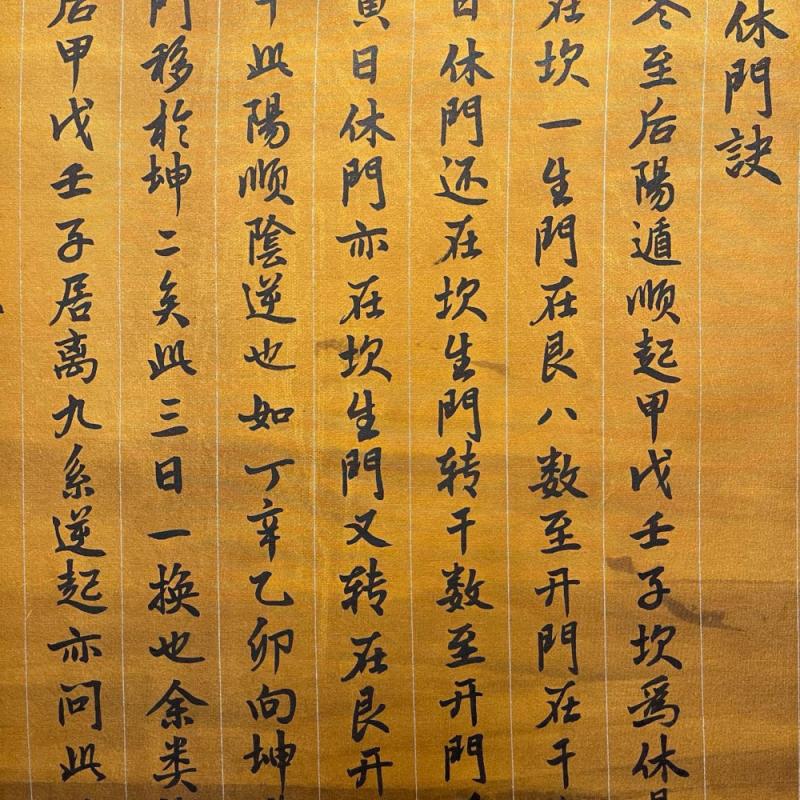 休門訣
冬至后陽遁順起甲戊壬子坎爲休
在坎一生門在艮八数至开門在干
日休門还在坎生門转干数至开門
寅日休門亦在坎生門又转在艮开
干此陽顺陰逆也如丁辛乙卯向坤
門移於坤二矣此三日一换也余类
后甲戊壬子居离九系逆起亦问此